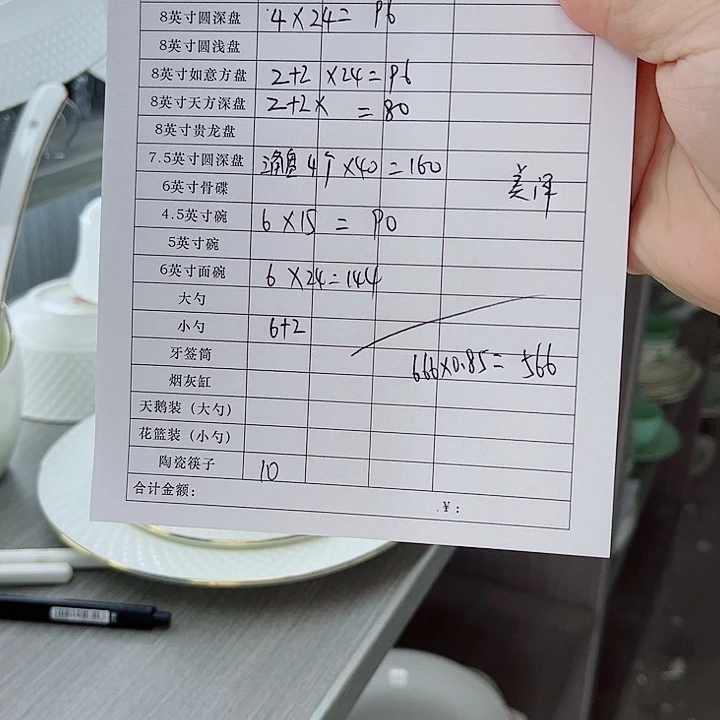 8英寸圆深盘 4×24= 96
8英寸圆浅盘
8英寸如意方盘 2+2 ×24=96
8英寸天方深盘 2+2× =80
8英寸贵龙盘
7.5英寸圆深盘 4个×40=160
6英寸骨碟
美泽
4.5英寸碗 6×15 = 90
5英寸碗
6英寸面碗 6×24=144
大勺
小勺 6+2
牙签筒
666×0.85= 566
烟灰缸
天鹅装（大勺）
花篮装（小勺）
陶瓷筷子 10
合计金额： ¥：